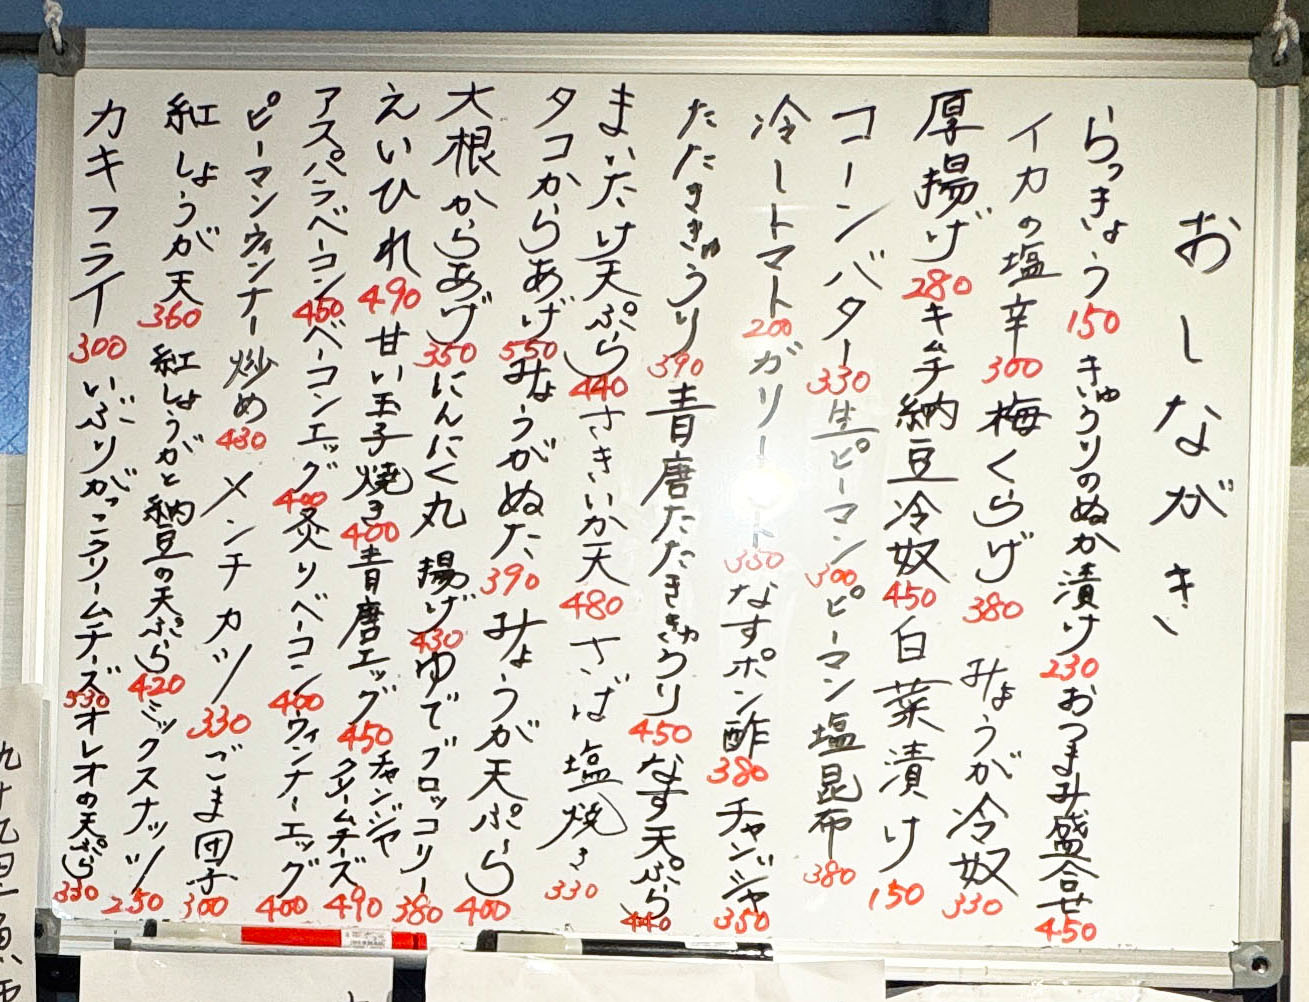 おしながき
らっきょう 150 きゅうりのぬか漬け 230 おつまみ盛合せ 450
イカの塩辛 300 梅くらげ 380 みょうが冷奴 330
厚揚げ 280 キムチ納豆冷奴 450 白菜漬け 150
コーンバター 330 生ピーマン 300 ピーマン塩昆布 380
冷しトマト 200 ガリトマト 350 なすポン酢 380 チャンジャ 350
たたききゅうり 390 青唐たたききゅうり 450 なす天ぷら 440
まいたけ天ぷら 440 さきいか天 480 さば塩焼き 330
タコからあげ 550 みょうがぬた 390 みょうが天ぷら 400
大根からあげ 350 にんにく丸揚げ 430 ゆでブロッコリー 380
えいひれ 490 甘い玉子焼き 400 青唐エッグ 450 チャンジャクリームチーズ 490
アスパラベーコン 450 ベーコンエッグ 400 炙りベーコン 400 ウィンナーエッグ 400
ピーマンウィンナー炒め 430 メンチカツ 330 ごま団子 300
紅しょうが天 360 紅しょうがと納豆の天ぷら 420 ミックスナッツ 250
カキフライ 300 いぶりがっこクリームチーズ 530 オレオの天ぷら 330